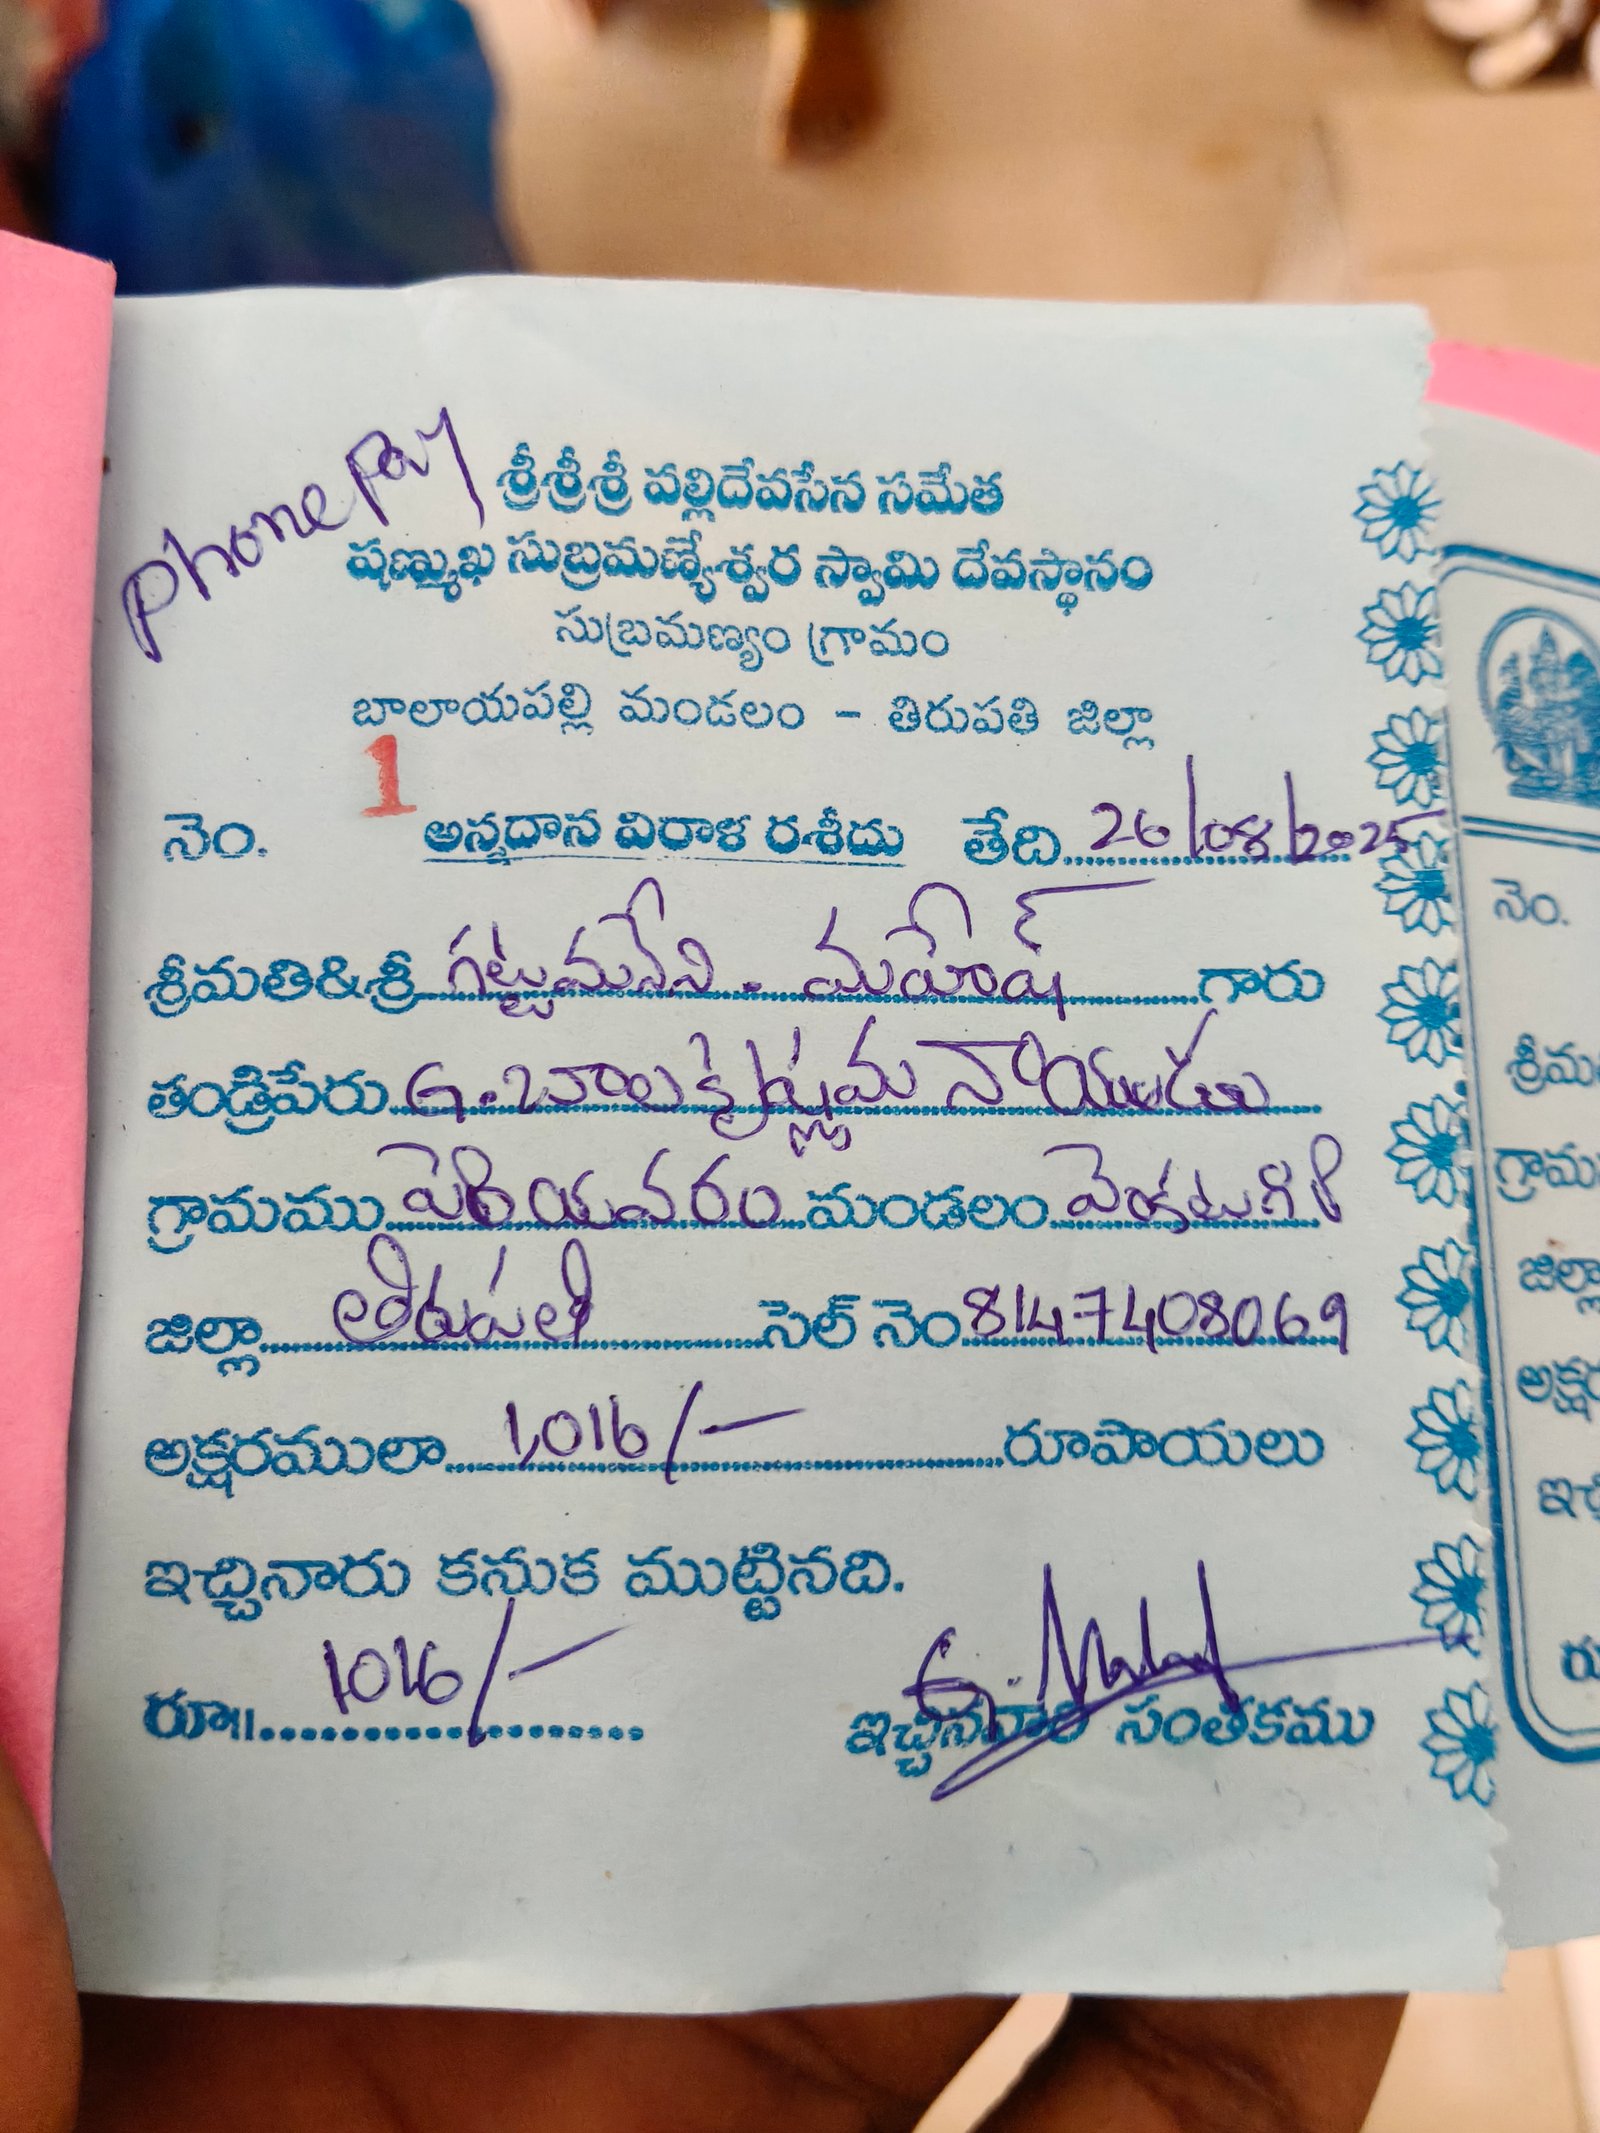 phonepay
శ్రీశ్రీశ్రీ వల్లిదేవసేన సమేత
షణ్ముఖ సుబ్రమణ్యేశ్వర స్వామి దేవస్థానం
సుబ్రమణ్యం గ్రామం
బాలాయపల్లి మండలం - తిరుపతి జిల్లా
నెం. 1 అన్నదాన విరాళ రశీదు తేది 26/08/2025
శ్రీమతి&శ్రీ గట్టుమనేని - మహేష్ గారు
తండ్రిపేరు G. బాలక్రిష్ణమ నాయుడు
గ్రామము పెరియవరం మండలం వెంకటగిరి
జిల్లా తిరుపతి సెల్ నెం 8147408069
అక్షరములా 1,016/- రూపాయలు
ఇచ్చినారు కనుక ముట్టినది.
రూ॥ 1016/-
ఇచ్చినవారి సంతకము
నెం.